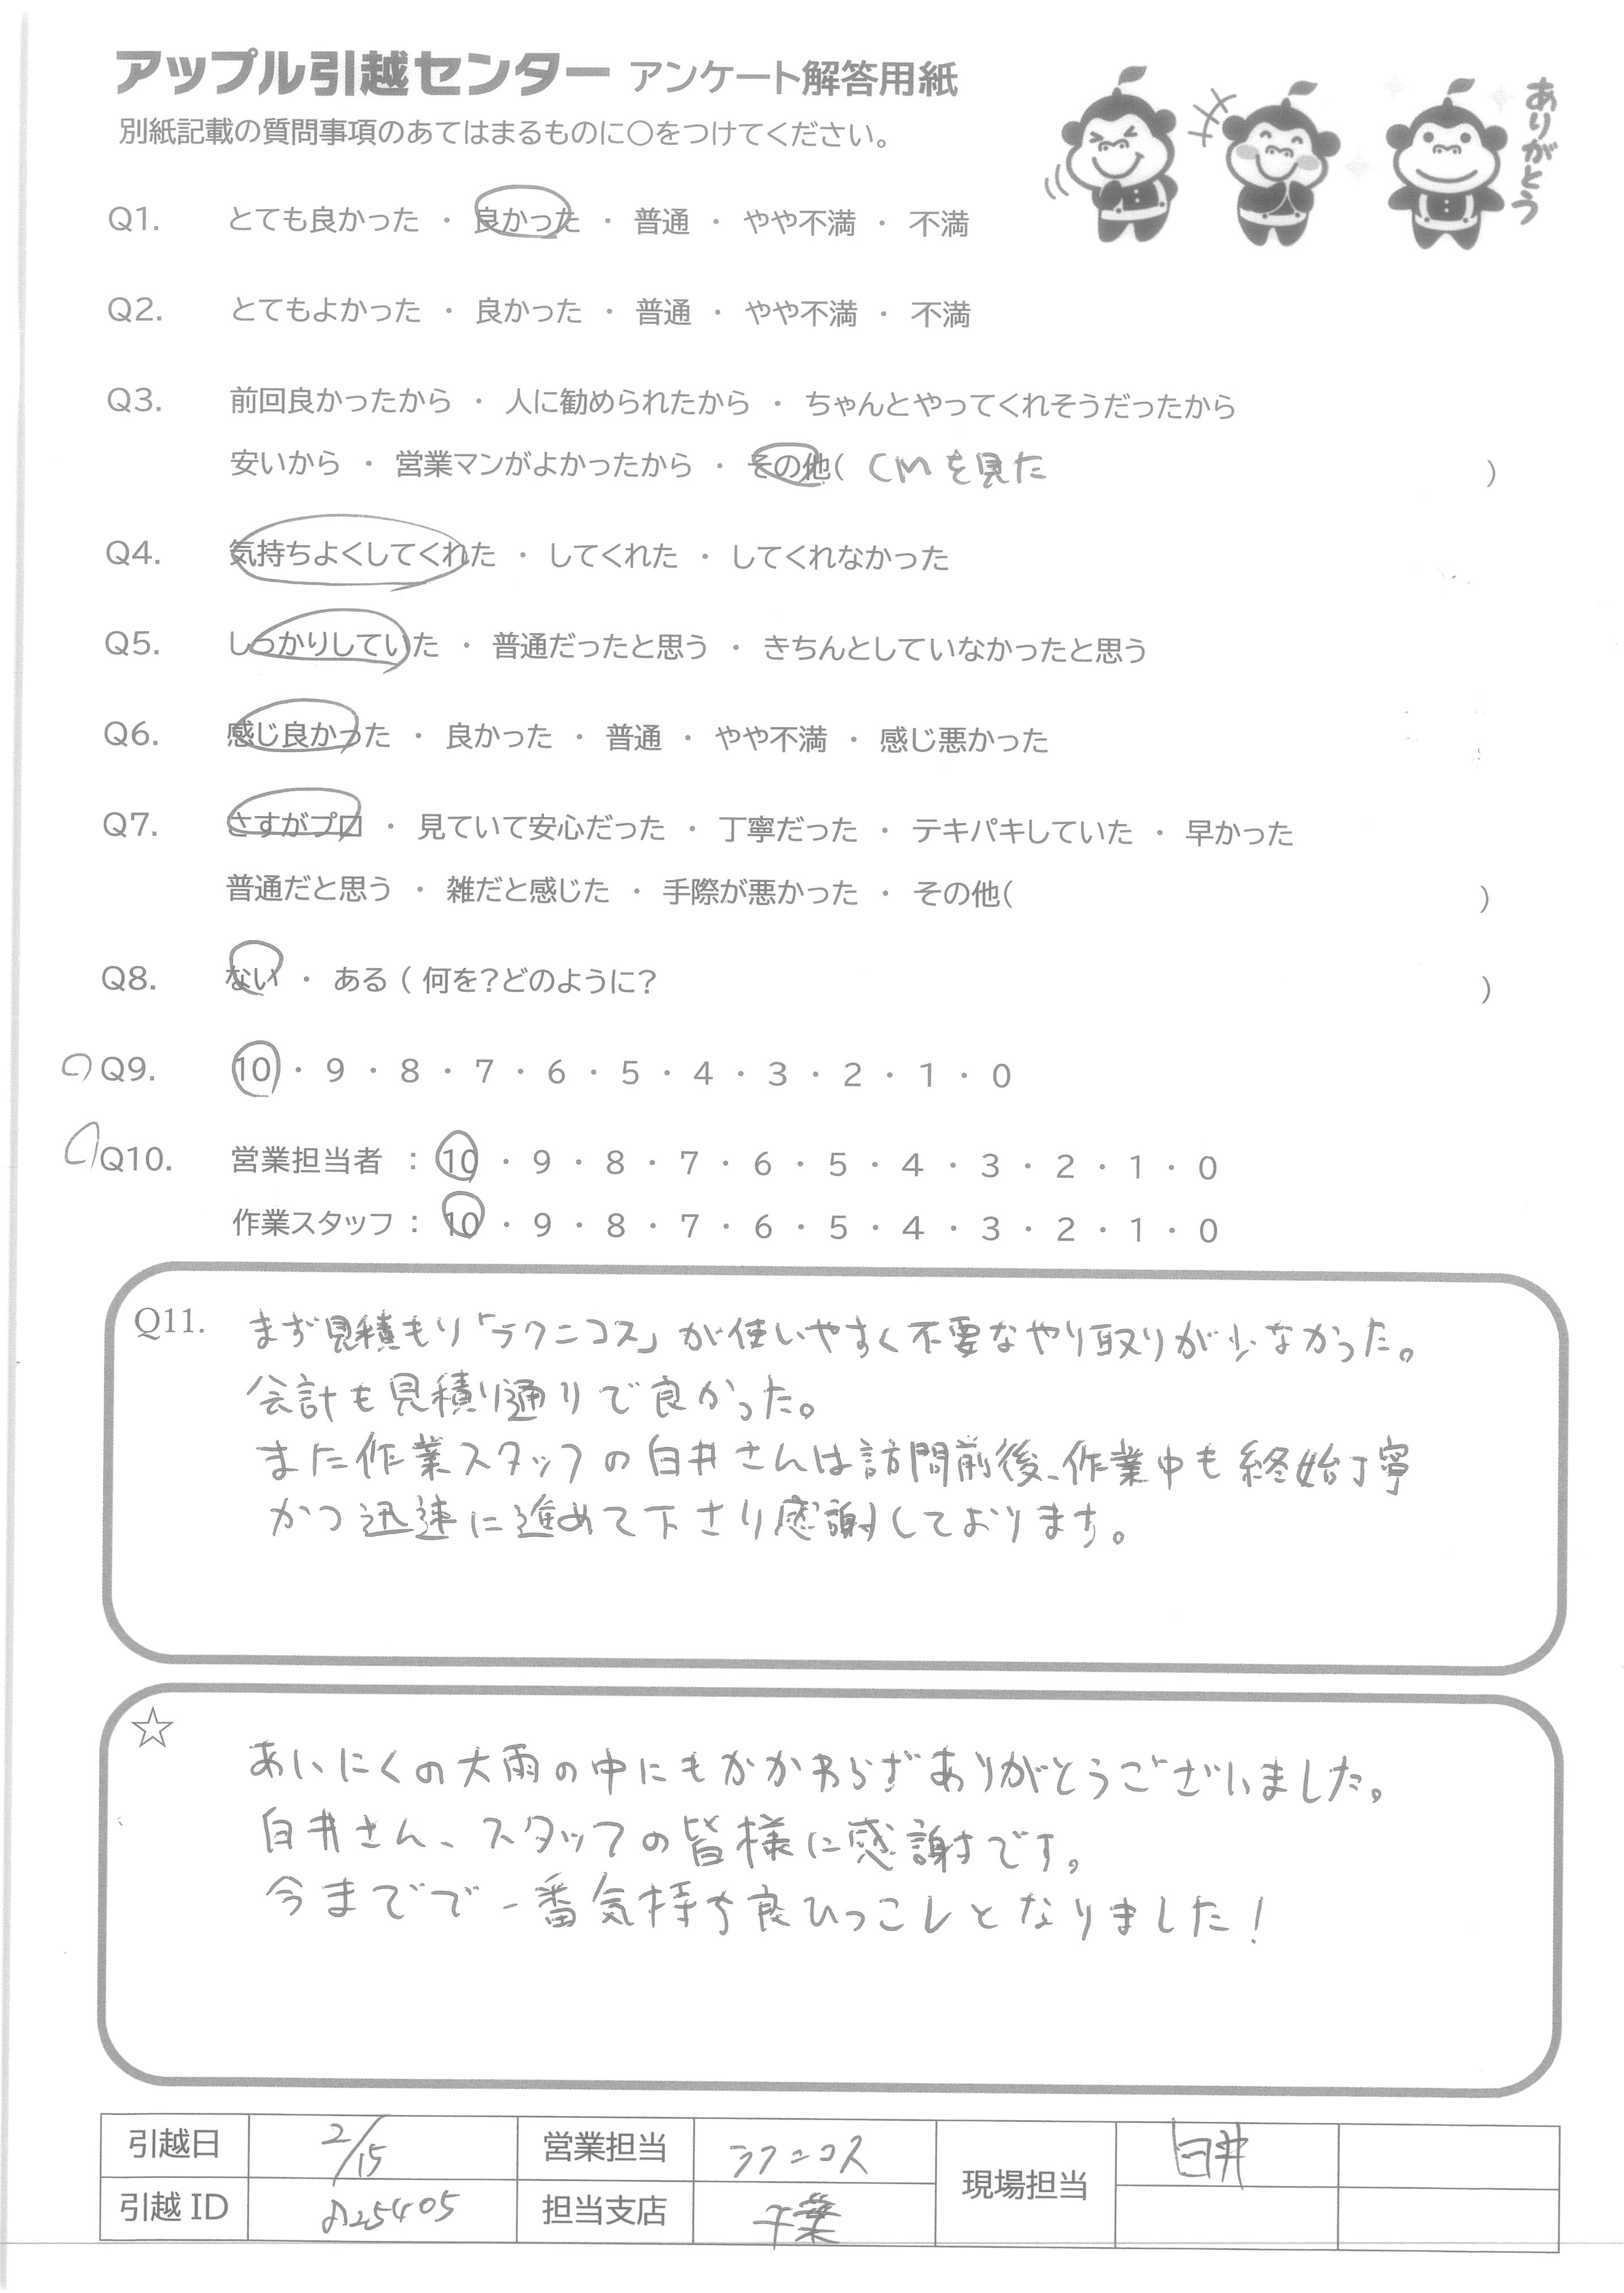 アップル引越センター アンケート解答用紙
別紙記載の質問事項のあてはまるものに○をつけてください。
ありがとう
Q1. とても良かった ・ 良かった ・ 普通 ・ やや不満 ・ 不満
Q2. とてもよかった ・ 良かった ・ 普通 ・ やや不満 ・ 不満
Q3. 前回良かったから ・ 人に勧められたから ・ ちゃんとやってくれそうだったから
安いから ・ 営業マンがよかったから ・ その他( CMを見た )
Q4. 気持ちよくしてくれた ・ してくれた ・ してくれなかった
Q5. しっかりしていた ・ 普通だったと思う ・ きちんとしていなかったと思う
Q6. 感じ良かった ・ 良かった ・ 普通 ・ やや不満 ・ 感じ悪かった
Q7. さすがプロ ・ 見ていて安心だった ・ 丁寧だった ・ テキパキしていた ・ 早かった
普通だと思う ・ 雑だと感じた ・ 手際が悪かった ・ その他( )
Q8. ない ・ ある ( 何を?どのように? )
Q9. 10 ・ 9 ・ 8 ・ 7 ・ 6 ・ 5 ・ 4 ・ 3 ・ 2 ・ 1 ・ 0
Q10. 営業担当者 : 10 ・ 9 ・ 8 ・ 7 ・ 6 ・ 5 ・ 4 ・ 3 ・ 2 ・ 1 ・ 0
作業スタッフ : 10 ・ 9 ・ 8 ・ 7 ・ 6 ・ 5 ・ 4 ・ 3 ・ 2 ・ 1 ・ 0
Q11. まず見積もり「ラクニコス」が使いやすく不要なやり取りが少なかった。
会計も見積り通りで良かった。
また作業スタッフの白井さんは訪問前後、作業中も終始丁寧
かつ迅速に進めて下さり感謝しております。
☆
あいにくの大雨の中にもかかわらずありがとうございました。
白井さん、スタッフの皆様に感謝です。
今までで一番気持ち良ひっこしとなりました!
引越日 2/15 営業担当 ラクニコス 現場担当 白井
引越ID 担当支店 千葉